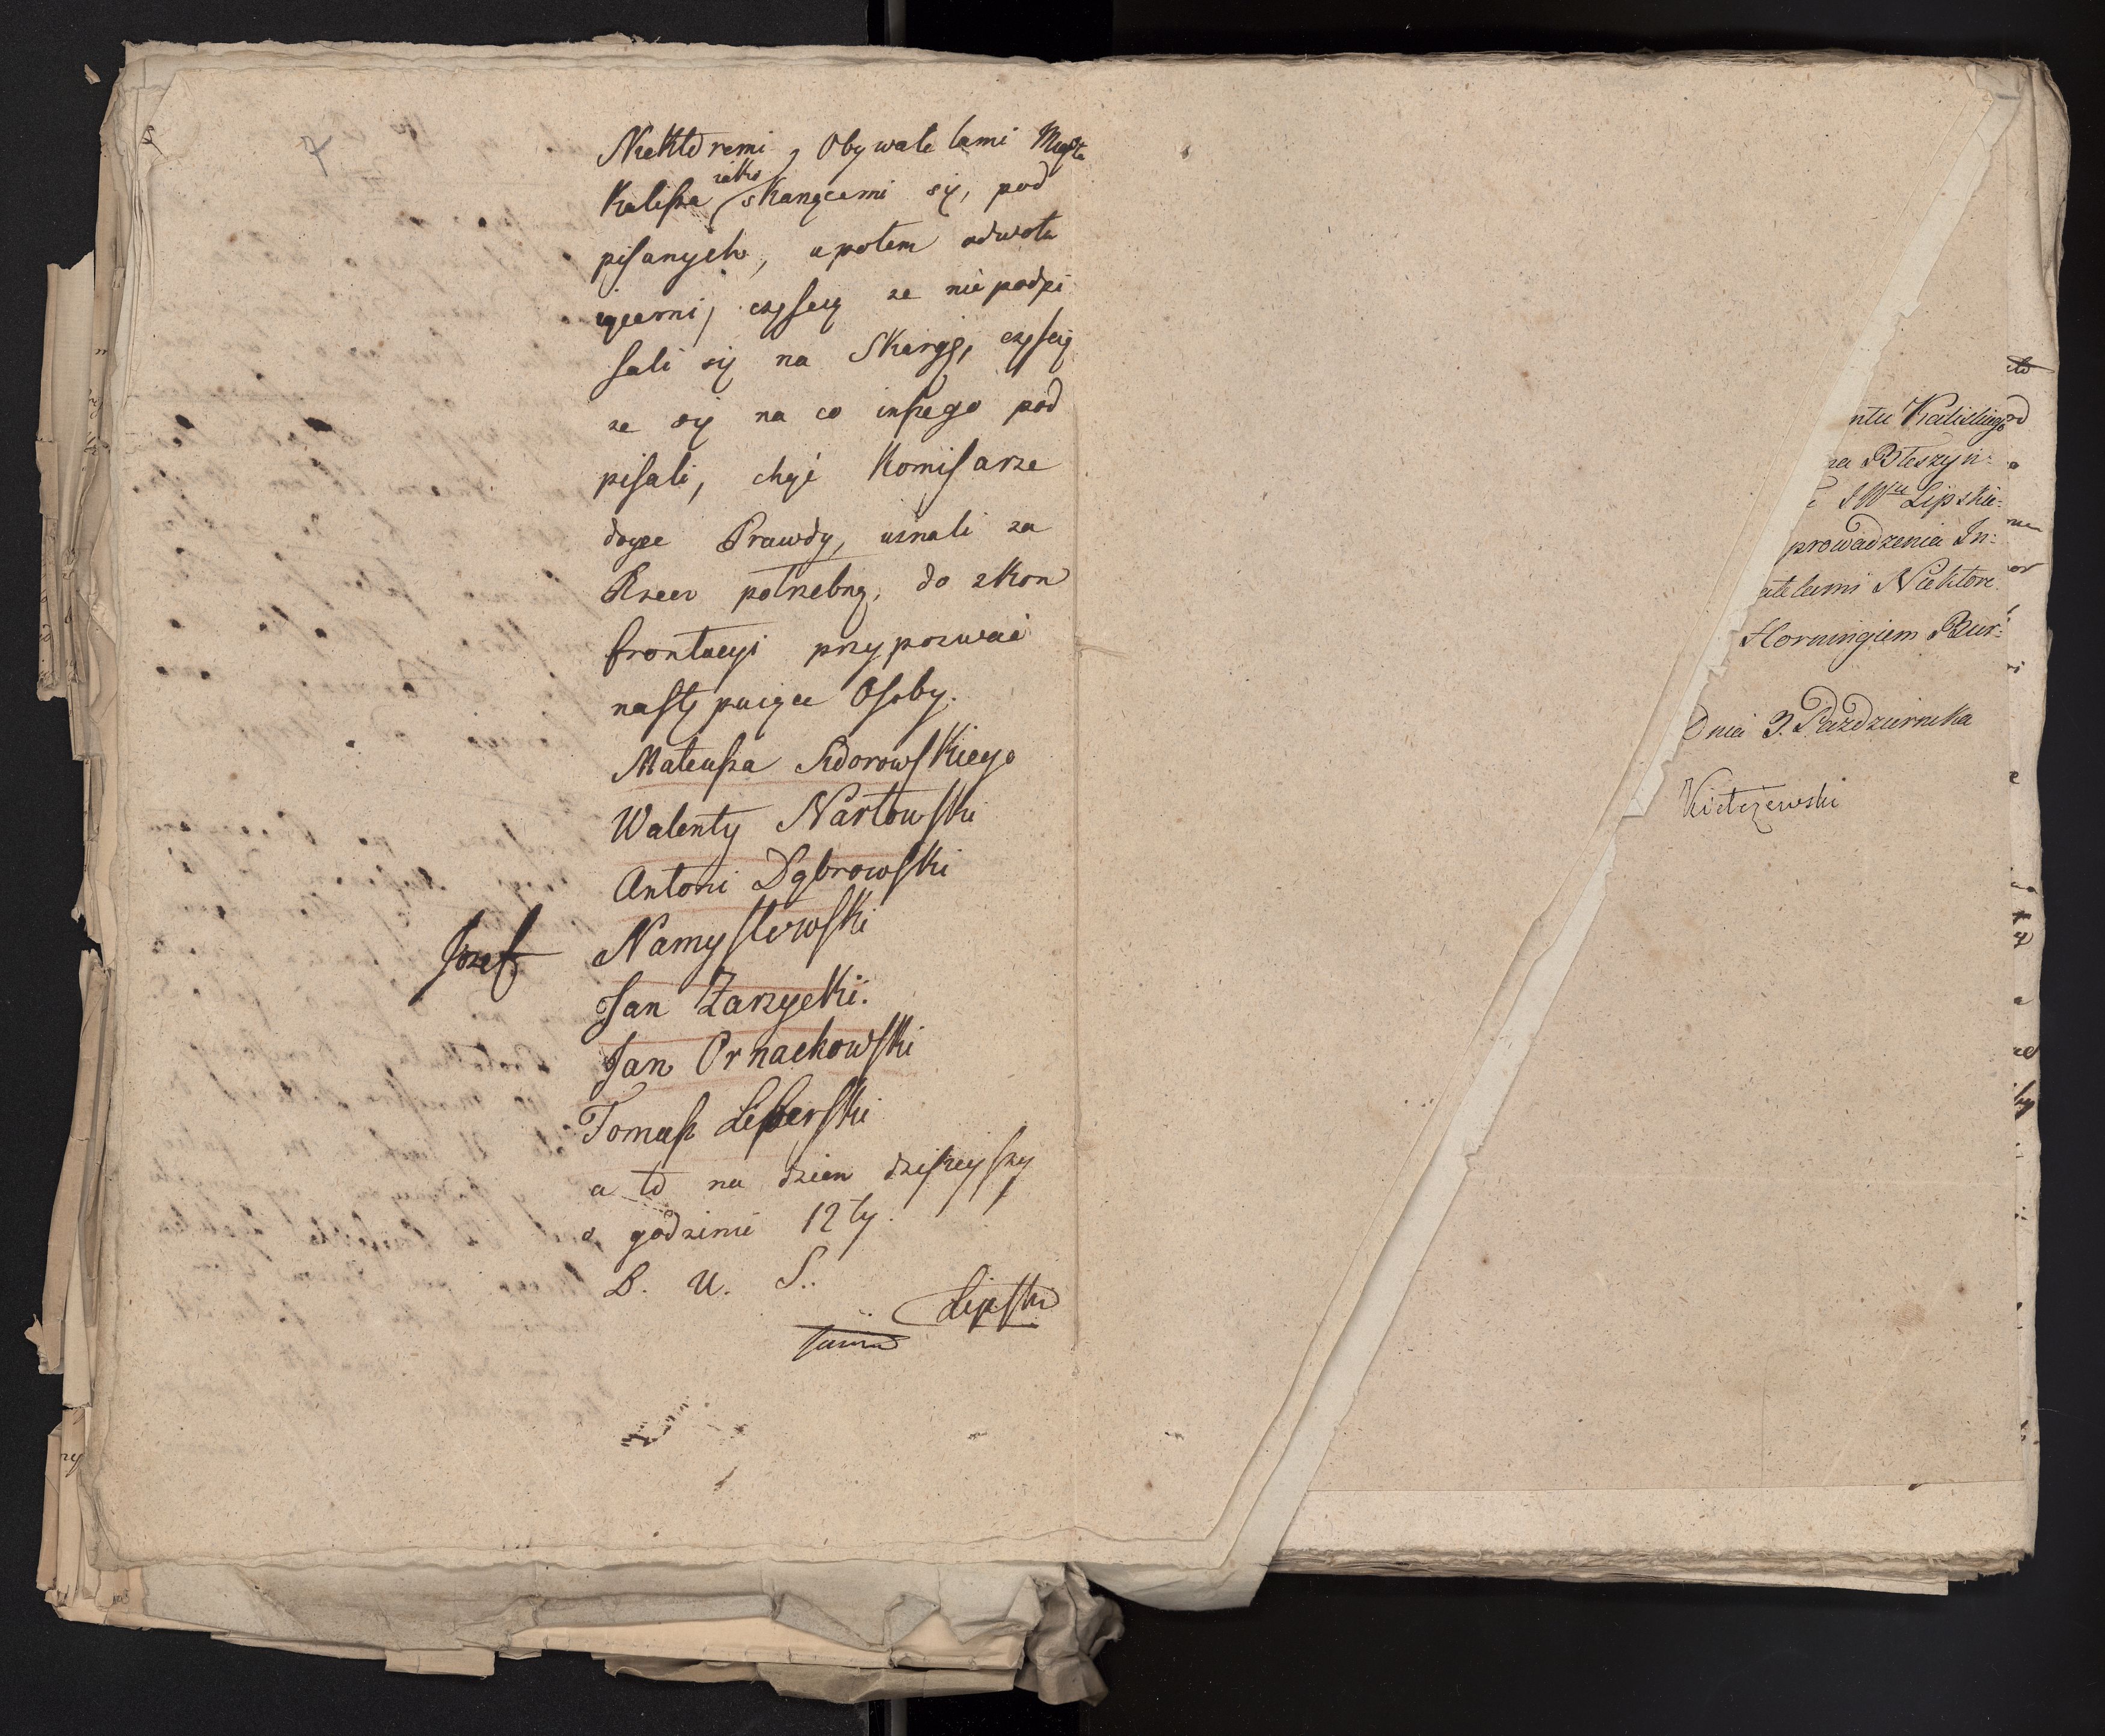 7
Niektoremi, Obywatelami Miasta
Kalisza iako skarzącemi się, pod
pisanych, a potem odwołu
iącemi, częscią ze nie podpi
sali się na Skargę, częscią
ze się na co inszego pod
pisali, chcąc Komisarze
dojść Prawdy, uznali za
Rzecz potrzebną, do skon
frontacyi przypozwać
następuiące Osoby.
Mateusza Sidorowskiego
Walenty Nartowski
Antoni Dąbrowski
Jozef Namysłowski
Jan Zarzycki.
Jan Ornachowski
Tomasz Leszerski
a to na dzien dziszieyszy
o godzinie 12ty.
D. U. S.
Lipski
ntu Kaliskiego
na Błeszyń:
JWu Lipskie:
prowadzenia In:
atelami Niektore
Horningiem Bur:
Dnia 3. Pazdziernika